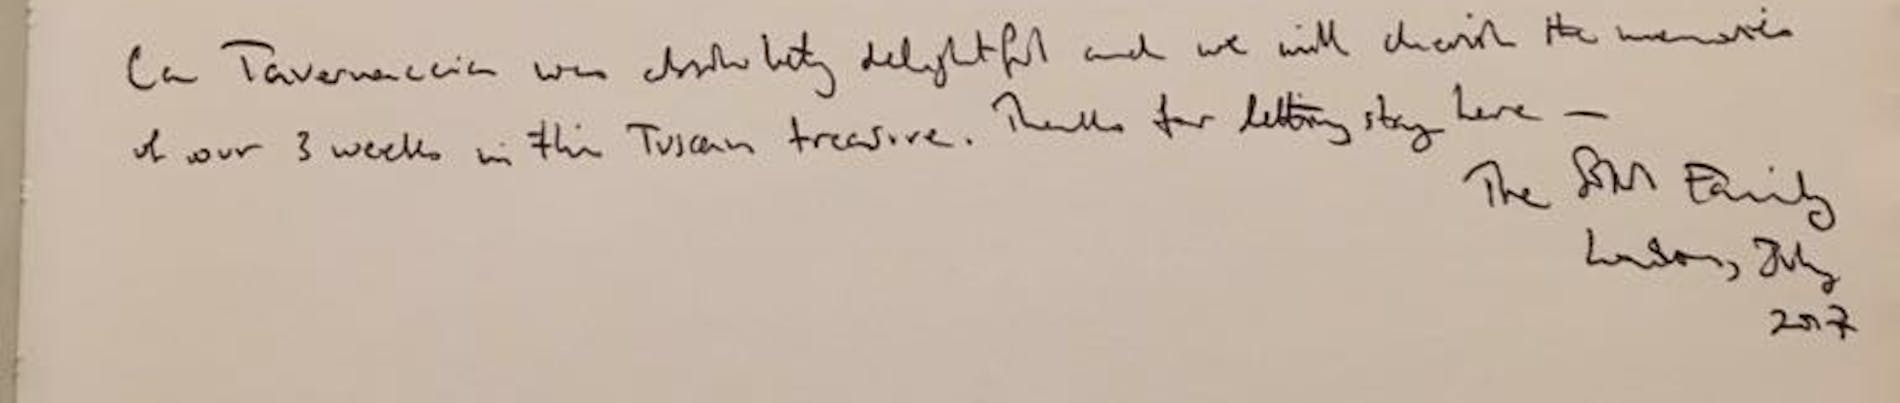 La Tavernaccia was absolutely delightful and we will cherish the memories
of our 3 weeks in this Tuscan treasure. Thanks for letting stay here —
The Family
London, July
2017